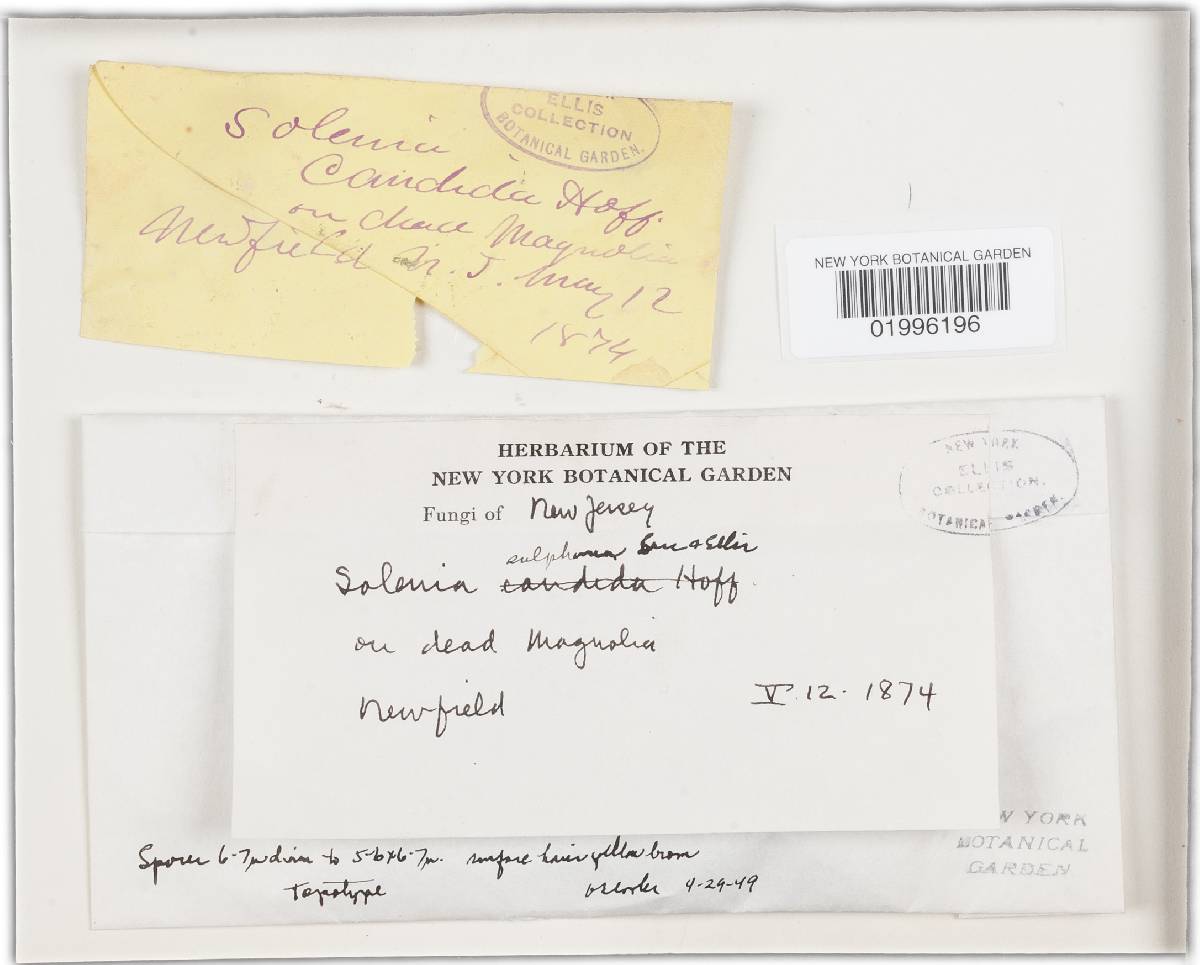 ELLIS
COLLECTION
BOTANICAL GARDEN.
Solenia
Candida Hoff.
on dead Magnolia
Newfield N. J. May 12
1874
NEW YORK BOTANICAL GARDEN
01996196
HERBARIUM OF THE
NEW YORK BOTANICAL GARDEN
NEW YORK
ELLIS
COLLECTION.
BOTANICAL GARDEN.
Fungi of New Jersey
& Ellis
Solenia candida Hoff.
on dead Magnolia
Newfield V. 12. 1874
W YORK
BOTANICAL
GARDEN
Spores 6-7µ diam to 5-6x6-7µ. surface hairs yellow brown
Topotype 4-29-49